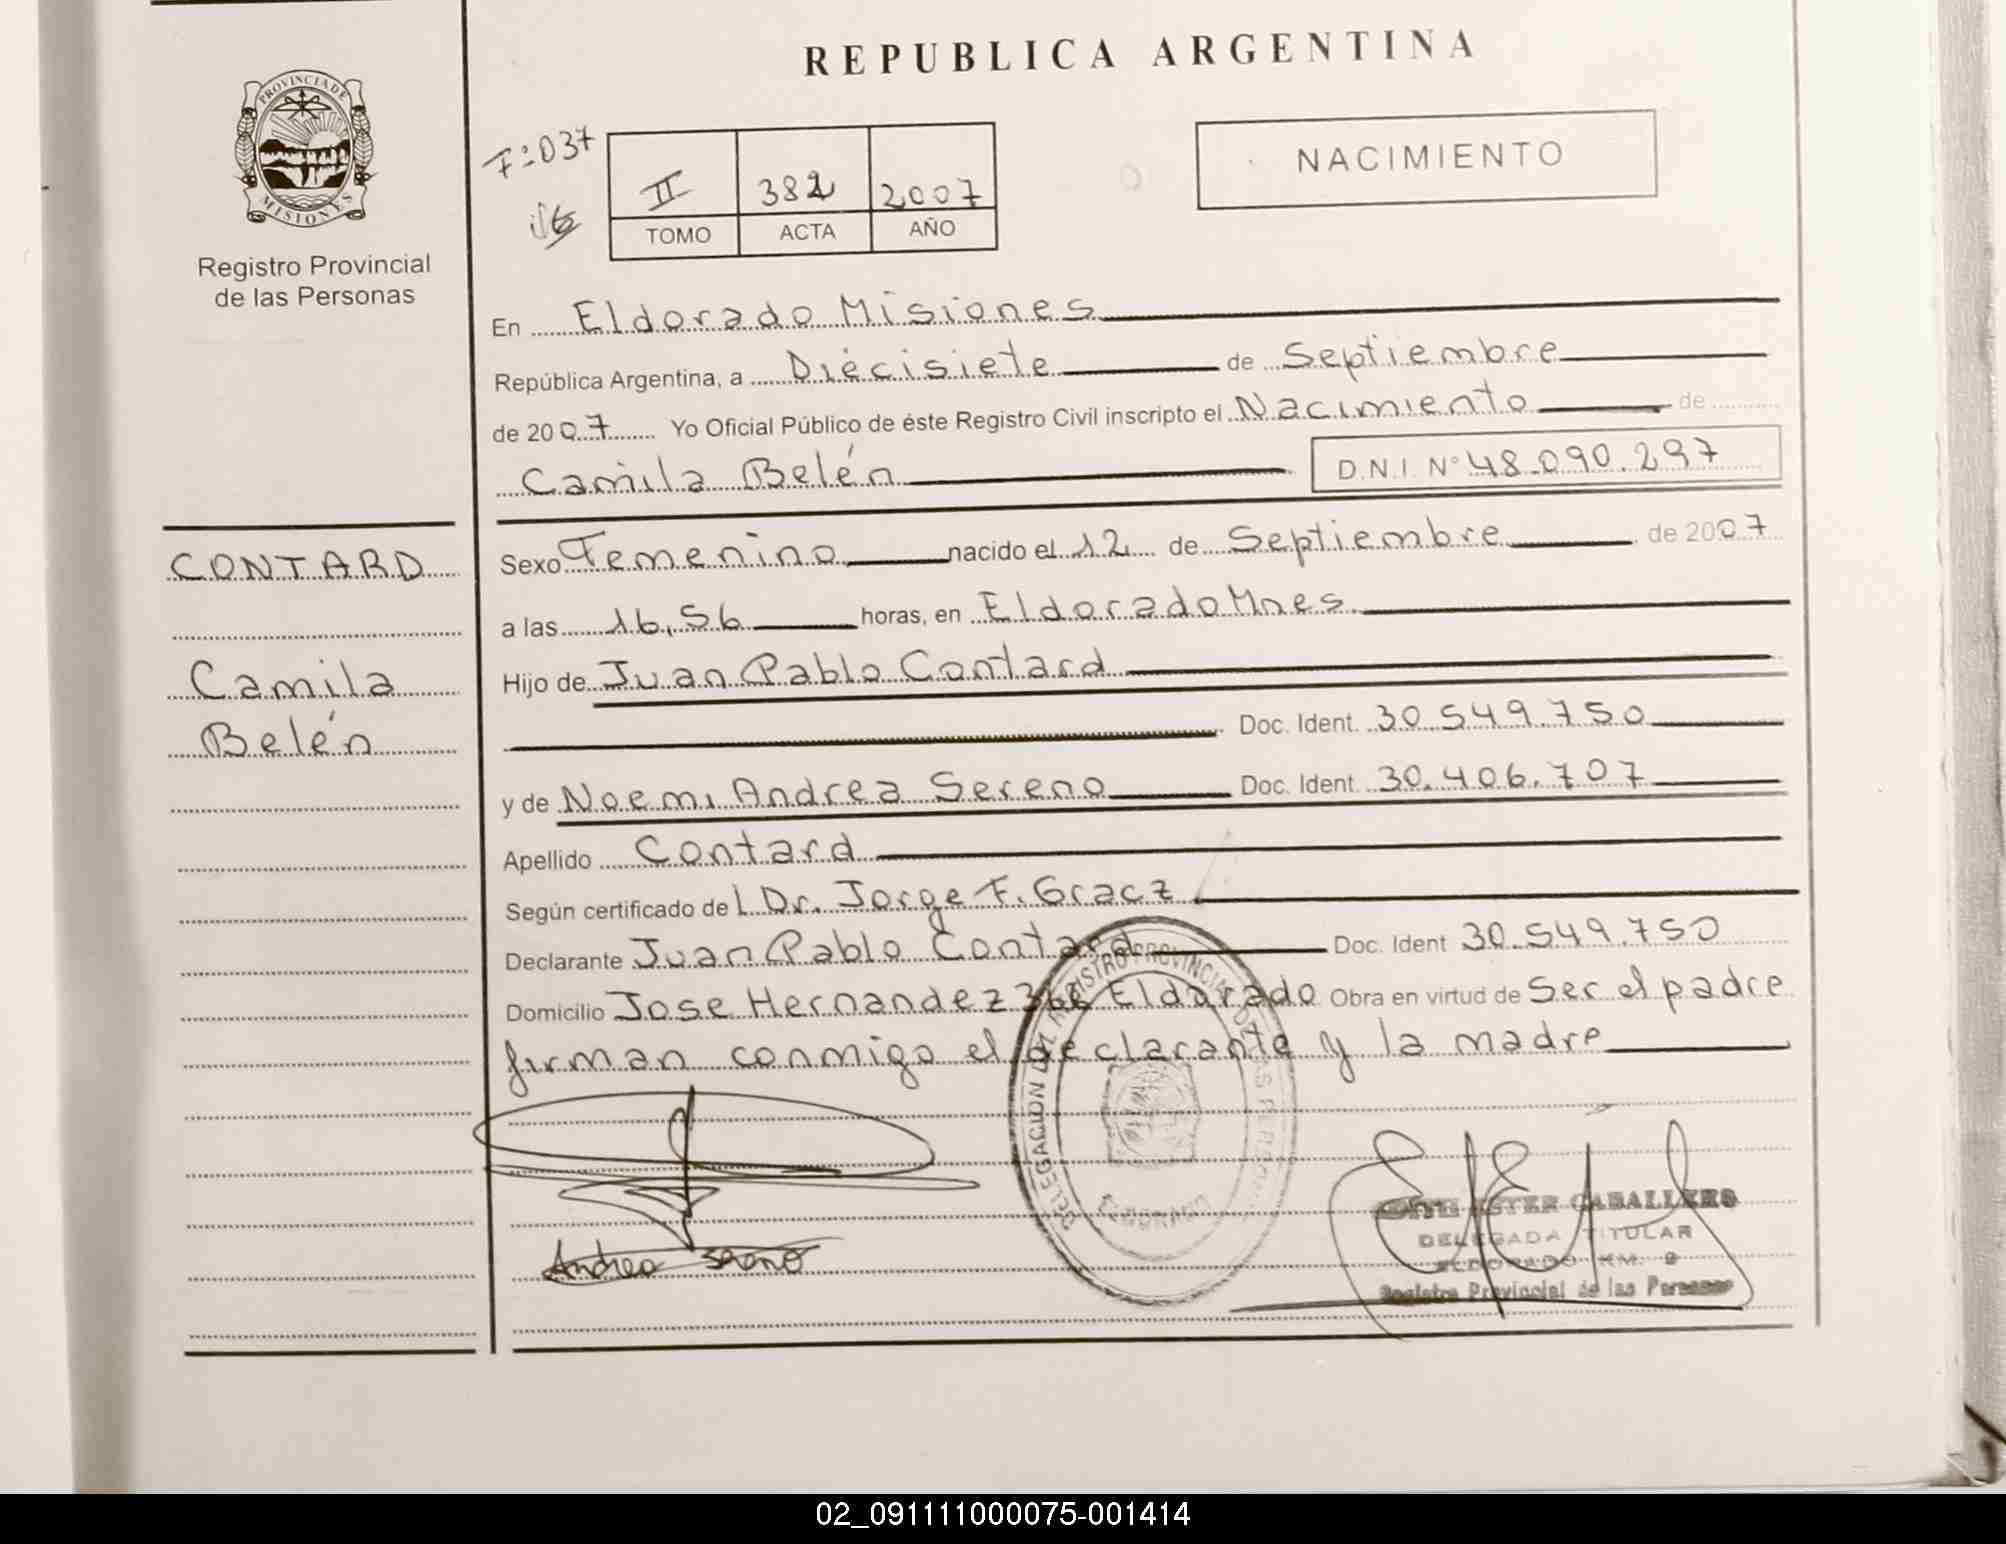 REPUBLICA ARGENTINA
PROVINCIA DE MISIONES
Registro Provincial
de las Personas
F:037
II 382 2007
TOMO ACTA AÑO
NACIMIENTO
En Eldorado Misiones
República Argentina, a Diécisiete de Septiembre
de 2007 Yo Oficial Público de éste Registro Civil inscripto el Nacimiento de
Camila Belén D.N.I. N° 48.090.297
CONTARD
Camila
Belén
Sexo Femenino nacido el 12 de Septiembre de 2007
a las 16,56 horas, en Eldorado Mnes
Hijo de Juan Pablo Contard
Doc. Ident. 30.549.750
y de Noemi Andrea Sereno Doc. Ident. 30.406.707
Apellido Contard
Según certificado del Dr. Jorge F. Gracz
Declarante Juan Pablo Contard Doc. Ident 30.549.750
Domicilio Jose Hernandez Eldorado Obra en virtud de Ser el padre
firman conmigo el declarante y la madre
DELEGACION DEL REGISTRO PROVINCIAL DE LAS PERSONAS
ELDORADO
Andrea Sereno
ESTER CABALLERO
DELEGADA TITULAR
ELDORADO KM. 9
Registro Provincial de las Personas
02_091111000075-001414